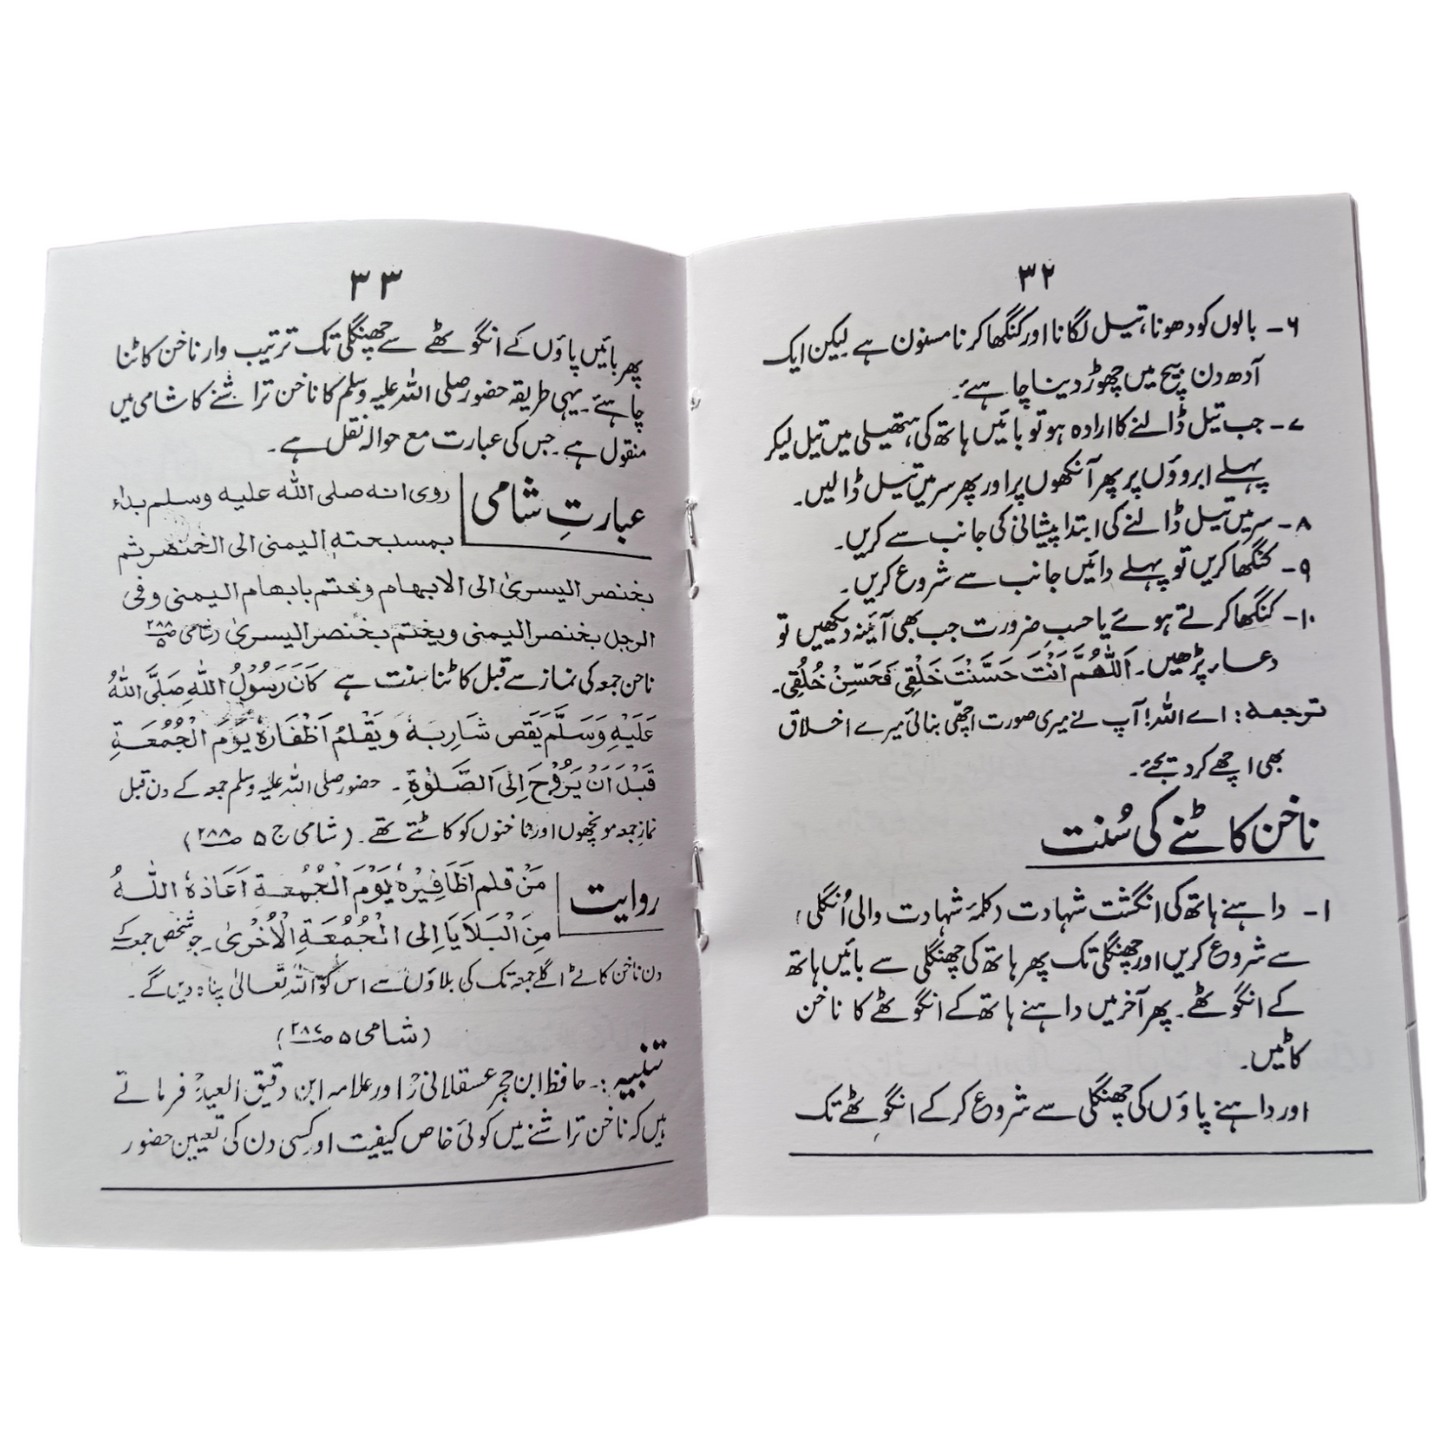 ۳۲
۶- بالوں کو دھونا، تیل لگانا اور کنگھا کرنا مسنون ہے لیکن ایک
آدھ دن بیچ میں چھوڑ دینا چاہئے۔
۷- جب تیل ڈالنے کا ارادہ ہو تو بائیں ہاتھ کی ہتھیلی میں تیل لیکر
پہلے ابروؤں پر پھر آنکھوں پر اور پھر سر میں تیل ڈالیں۔
۸- سر میں تیل ڈالنے کی ابتدا پیشانی کی جانب سے کریں۔
۹- کنگھا کریں تو پہلے دائیں جانب سے شروع کریں۔
۱۰- کنگھا کرتے ہوئے یا حسبِ ضرورت جب بھی آئینہ دیکھیں تو
دعا پڑھیں۔ اَللّٰهُمَّ اَنْتَ حَسَّنْتَ خَلْقِی فَحَسِّنْ خُلُقِی۔
ترجمہ: اے اللہ! آپ نے میری صورت اچھی بنائی میرے اخلاق
بھی اچھے کر دیجئے۔
ناخن کاٹنے کی سُنت
۱- داہنے ہاتھ کی انگشت شہادت (کلمۂ شہادت والی اُنگلی)
سے شروع کریں اور چھنگلی تک پھر ہاتھ کی چھنگلی سے بائیں ہاتھ
کے انگوٹھے۔ پھر آخر میں داہنے ہاتھ کے انگوٹھے کا ناخن
کاٹیں۔
اور داہنے پاؤں کی چھنگلی سے شروع کر کے انگوٹھے تک
۳۳
پھر بائیں پاؤں کے انگوٹھے سے چھنگلی تک ترتیب وار ناخن کاٹنا
چاہئے۔ یہی طریقہ حضور صلی اللہ علیہ وسلم کا ناخن تراشنے کا شامی میں
منقول ہے۔ جس کی عبارت مع حوالہ نقل ہے۔
عبارتِ شامی روی انہ صلی اللہ علیہ وسلم بداء
بمسبحتہ الیمنی الی الخنصر ثم
بخنصر الیسریٰ الی الابھام وختم بابھام الیمنی وفی
الرجل بخنصر الیمنی ویختم بخنصر الیسریٰ (شامی ص۲۸۸ ۵
ناخن جمعہ کی نماز سے قبل کاٹنا سنت ہے کَانَ رَسُوْلُ اللّٰهِ صَلَّی اللّٰهُ
عَلَیْهِ وَسَلَّمَ یَقَص شَارِبَهٗ وَ یَقْلمُ اَظْفَارَهٗ یَوْمَ الْجُمُعَةِ
قَبْلَ اَنْ یَرُوْحَ اِلَی الصَّلٰوةِ۔ حضور صلی اللہ علیہ وسلم جمعہ کے دن قبل
نماز جمعہ مونچھوں اور ناخنوں کو کاٹتے تھے۔ (شامی ج ۵ ص۲۸۸)
روایت مَنْ قلم اَظَافِیْرهٗ یَوْمَ الْجُمُعَةِ اَعَاذهُ اللّٰهُ
مِنَ الْبَلَایَا اِلی الْجُمُعَةِ الْاُخْریٰ۔ جو شخص جمعہ کے
دن ناخن کاٹے اگلے جمعہ تک کی بلاؤں سے اس کو اللہ تعالیٰ پناہ دیں گے۔
(شامی ۵ ص۲۸۷)
تنبیہ:۔ حافظ ابن حجر عسقلانیؒ اور علامہ ابن دقیق العیدؒ فرماتے
ہیں کہ ناخن تراشنے میں کوئی خاص کیفیت اور کسی دن کی تعیین حضور